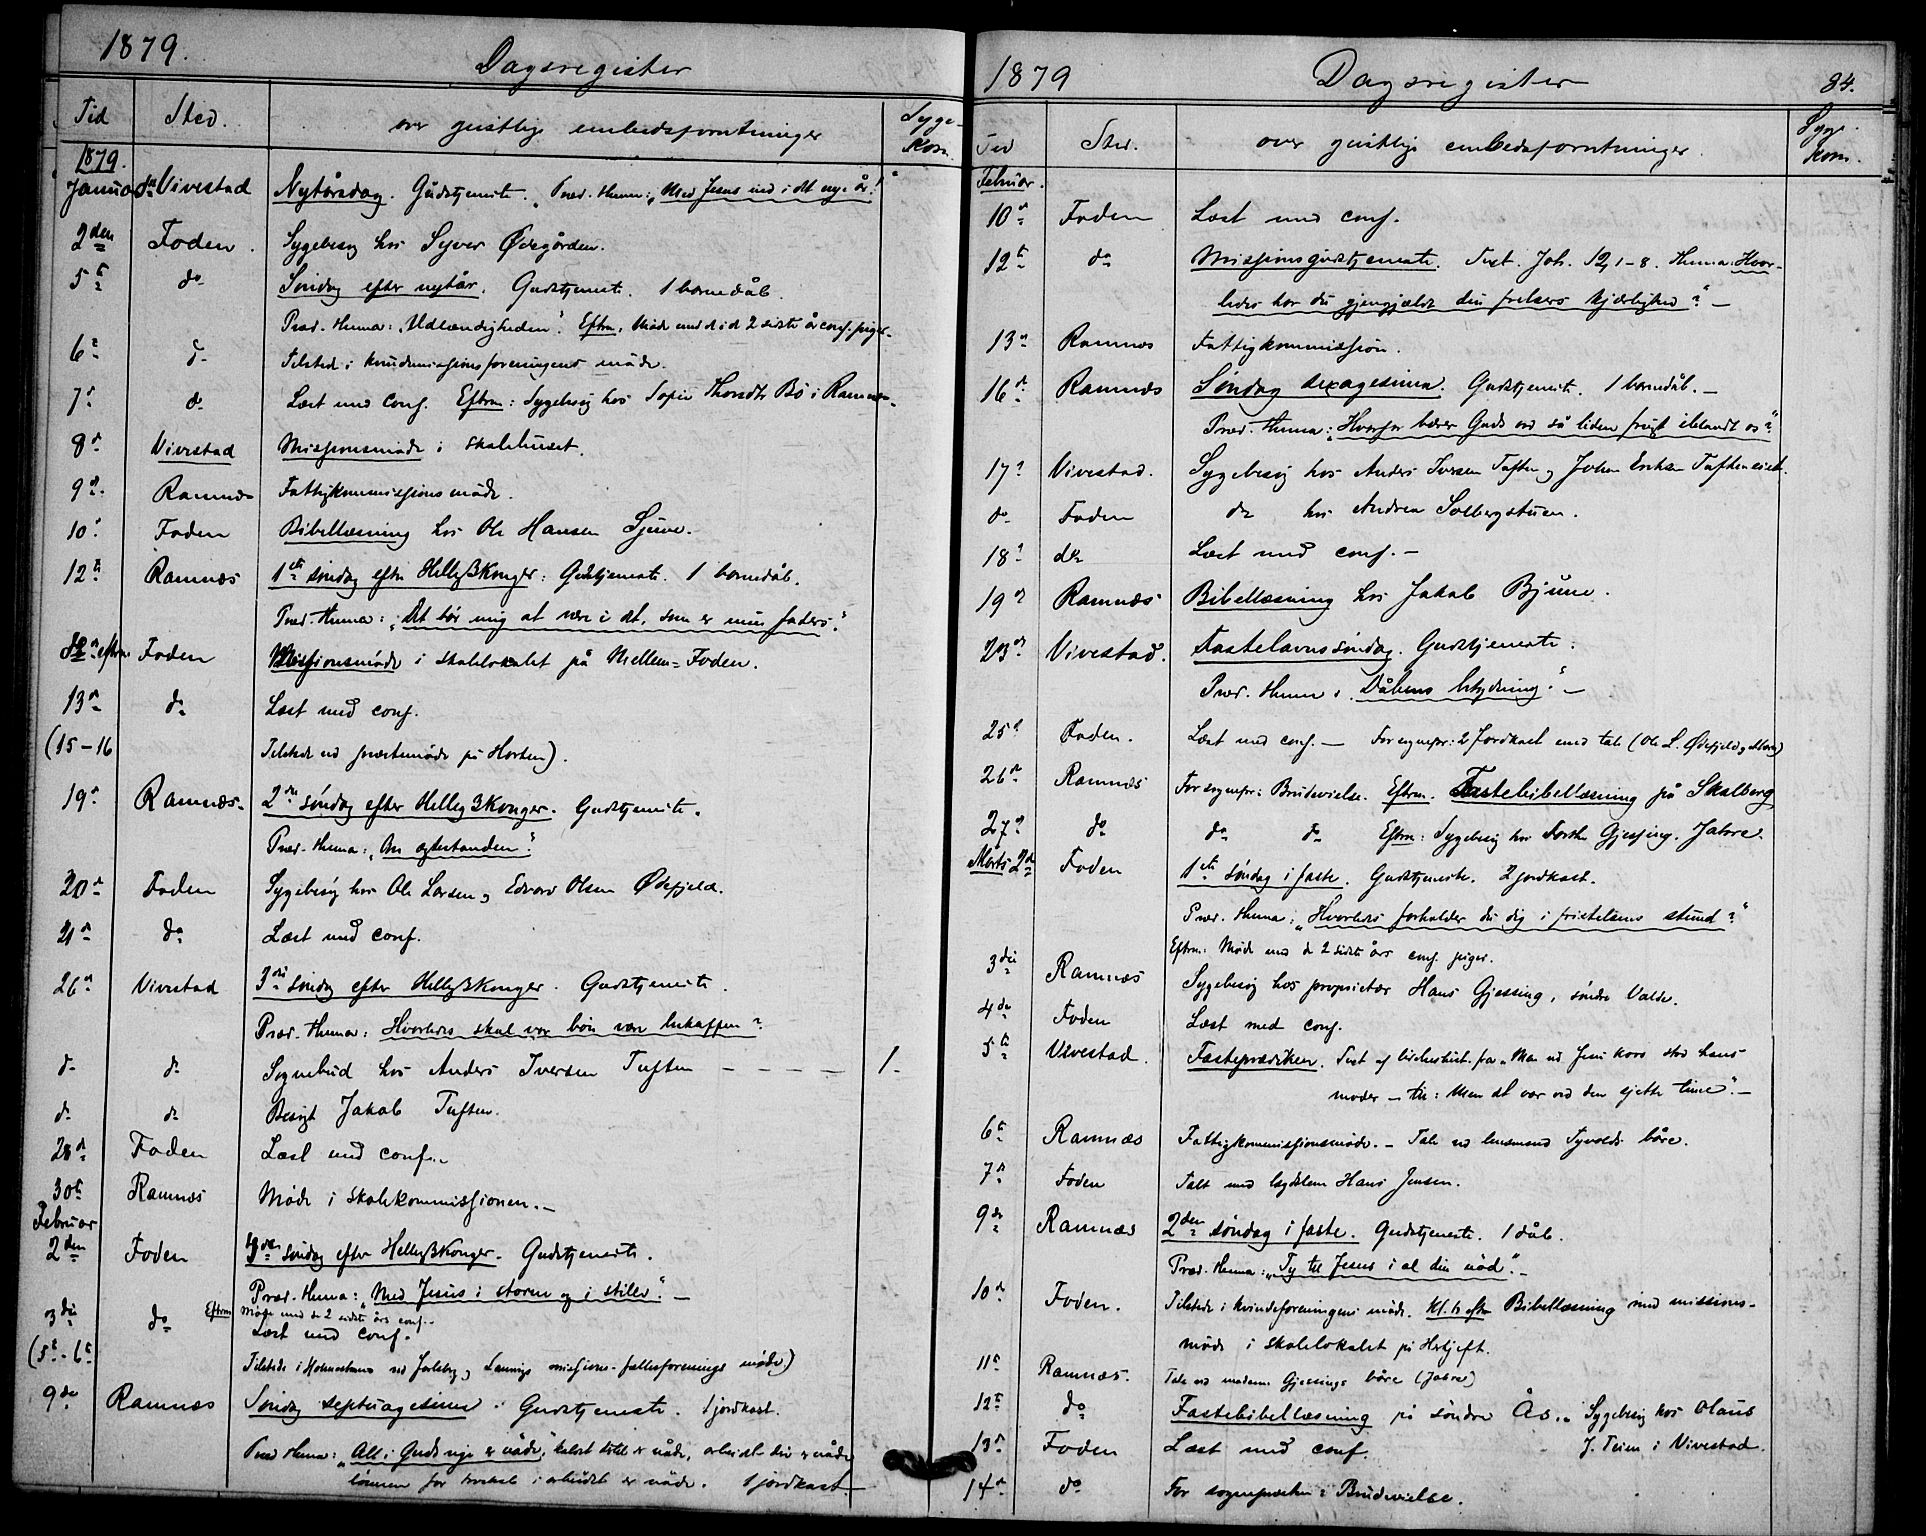 1879.
Dagsregister
Tid
Sted.
over geistlige embedsforretninger
Syge-
kom.
1879.
Januar 1ste Vivestad Nytårsdag. Gudstjeneste. Præd. thema: "Med Jesus ind i det nye år!"
2den Foden. Sygebesøg hos Syver Ødegården.
5te do Søndag efter nytår. Gudstjeneste. 1 barnedåb.
Præd. thema: "Udlændigheden". Eftm. Møde med de 2 sidste års conf. piger.
6te do Tilstede i kvindemissionsforeningens møde.
7de do Læst med conf. Eftm: Sygebesøg hos Sofie Thorsdtr Bø i Ramnæs.
8de Vivestad Missionsmøde i skolehuset.
9de Ramnæs Fattigkommissionsmøde.
10de Foden Bibellæsning hos Ole Hansen Sjuve.
12te Ramnæs 1ste søndag efter Hellig3Konger: Gudstjeneste. 1 barnedåb.
Præd. thema: "Det bør mig at være i det, som er min faders."
do eftm Foden Missionsmøde i skolelokalet på Mellem-Foden.
13de do Læst med conf.
(15-16 Tilstede ved præstemøde på Horten).
19de Ramnæs. 2den søndag efter Hellig3Konger. Gudstjeneste.
Præd. thema: "Om ægtestanden".
20de Foden Sygebesøg hos Ole Larsen og Edvard Olsen Ødefjeld.
21de do Læst med conf.
26de Vivestad 3die søndag efter Hellig3Konger. Gudstjeneste.
Præd. thema: Hvorledes skal vor bøn være beskaffen?
do do Sognebud hos Anders Iversen Tuften - - - - - 1.
do do Besøgt Jakob Tuften.
28de Foden Læst med conf.
30te Ramnæs Møde i skolekommissionen. -
Februar
2den Foden 4de søndag efter Hellig3Konger. Gudstjeneste.
Præd. thema: "Med Jesus i storm og i stille". -
Eftm Møde med de 2 sidste års conf.
3die do Læst med conf.
(5te-6te Tilstede i Holmestrand ved Jarlsberg og Laurvigs missions-fællesforenings møde)
9de Ramnæs Søndag septuagesima. Gudstjeneste. 1 jordkast.
Præd thema: "Alt i Guds rige er nåde," kaldet dertil er nåde, arbeidet der er nåde
lønnen for troskab i arbeidet er nåde. 1 jordkast -
1879
Dagsregister
84.
Tid
Sted.
over geistlige embedsforretninger.
Syge-
kom.
Februar.
10de Foden Læst med conf.
12te do Missionsgudstjeneste. Text. Joh. 12, 1-8. Thema: Hvor-
ledes har du gjengjældt din frelsers kjærlighed?" -
13de Ramnæs Fattigkommission.
16de Ramnæs Søndag sexagesima. Gudstjeneste. 1 barnedåb. -
Præd. thema: "Hvorfor bærer Guds ord så liden frugt iblandt os?"
17de Vivestad. Sygebesøg hos Anders Iversen Tuften og Johan Eriksen Tufteneiet.
do Foden do hos Andrea Solbergstuen.
18de do Læst med conf. -
19de Ramnæs Bibellæsning hos Jakob Bjune.
23de Vivestad. Fastelavnssøndag. Gudstjeneste.
Præd. thema: "Dåbens betydning." -
25de Foden. Læst med conf. - For sognepr: 2 Jordkast med tale (Ole L. Ødefjeld og Moen)
26de Ramnæs For sognepr: Brudevielse. Eftm. Fastebibellæsning på Skalberg
27de do do do Eftm: Sygebesøg hos Gjessing. Jahre.
Marts 2den Foden 1ste søndag i faste. Gudstjeneste. 2 jordkast.
Præd. thema: "Hvorledes forholder du dig i fristelsens stund?"
Eftm: Møde med de 2 sidste års conf. piger.
3die Ramnæs Sygebesøg hos proprietær Hans Gjessing, søndre Valde.
4de Foden Læst med conf.
5te Vivestad. Fasteprædiken. Text af lidelseshist. fra "Men ved Jesu kors stod hans
moder - til: Men det var ved den sjette time". -
6te Ramnæs Fattigkommissionsmøde. - Tale ved husmand Tyvolds båre.
7de Foden Talt med lægdslem Hans Jensen.
9de Ramnæs 2den søndag i faste. Gudstjeneste. 1 dåb.
Præd. thema: "Ty til Jesus i al din nød". -
10de Foden. Tilstede i kvindeforeningens møde. Kl. 6 eftm Bibellæsning med missions-
møde i skolelokalet på Hertjeft.
11te Ramnæs. Tale ved madame Gjessings båre (Jahre)
12te do Fastebibellæsning på søndre Ås. - Sygebesøg hos Olaus
J. Teien i Vivestad.
13de Foden Læst med conf.
14de do For sognepræsten: Brudevielse.